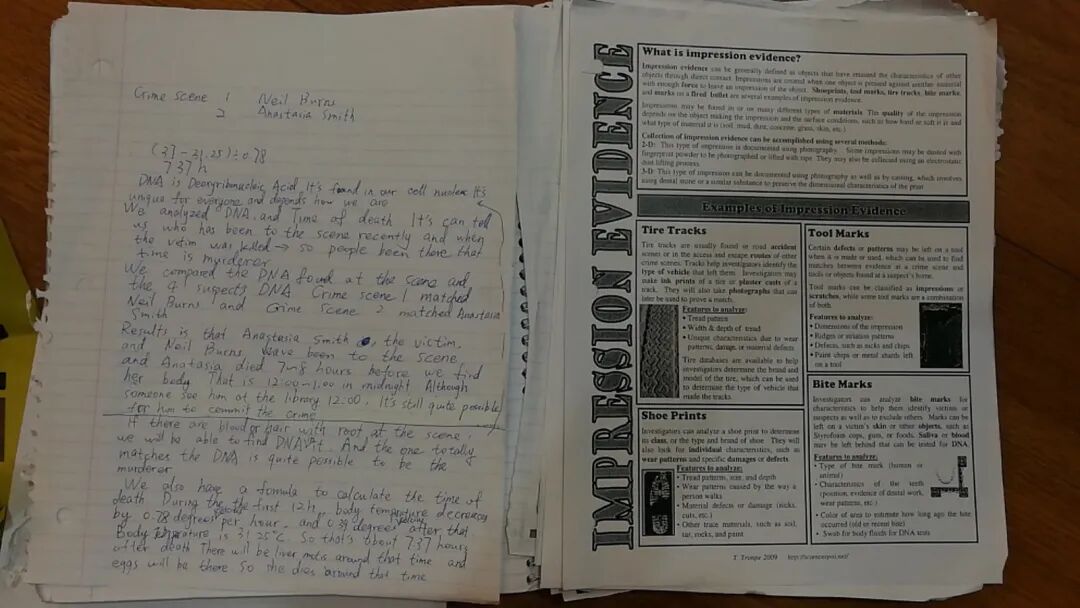 Crime scene 1 Neil Burns
2 Anastasia Smith
(37-31.25)÷0.78
7.37 h
DNA is Deoxyribonucleic Acid. It's found in our cell nucleus It's
unique for everyone and depends how we are
We analyzed DNA and Time of death It's can tell
us who has been to the scene recently and when
the victim was killed → so people been there that
time is murderer
We compared the DNA found at the scene and
the 4 suspects DNA Crime scene 1 matched
Neil Burns and Crime Scene 2 matched Anastasia
Smith
Results is that Anastasia Smith the victim.
and Neil Burns have been to the scene
and Anatasia died 7~8 hours before we find
her body. That is 12:00~1:00 in midnight Although
someone see him at the library 12:00. It's still quite possible
for him to commit the crime
If there are blood or hair with root at the scene,
we will be able to find DNA it. And the one totally
matches the DNA is quite possible to be the
murderer
We also have a formula to calculate the time of
death During the first 12h, body temperature decreases
by 0.78 degrees per hour. and 0.39 degrees after that
Body temperature is 31.25°C. So that's about 7.37 hours
after death there will be around that time and
eggs will be there So she dies around that time
IMPRESSION EVIDENCE
What is impression evidence?
Impression evidence can be generally defined as objects that have retained the characteristics of other
objects through direct contact. Impressions are created when one object is pressed against another material
with enough force to leave an impression of the object. Shoeprints, tool marks, tire tracks, bite marks,
and marks on a fired bullet are several examples of impression evidence.
Impressions may be found in or on many different types of materials. The quality of the impression
depends on the object making the impression and the surface conditions, such as how hard or soft it is and
what type of material it is (soil, mud, dust, concrete, grass, skin, etc.)
Collection of impression evidence can be accomplished using several methods:
2-D: This type of impression is documented using photography. Some impressions may be dusted with
fingerprint powder to be photographed or lifted with tape. They may also be collected using an electrostatic
dust lifting process.
3-D: This type of impression can be documented using photography as well as by casting, which involves
using dental stone or a similar substance to preserve the dimensional characteristics of the print.
Examples of Impression Evidence
Tire Tracks
Tire tracks are usually found or road accident
scenes or in the access and escape routes of other
crime scenes. Tracks help investigators identify the
type of vehicle that left them. Investigators may
make ink prints of a tire or plaster casts of a
track. They will also take photographs that can
later be used to prove a match.
Features to analyze:
• Tread pattern
• Width & depth of tread
• Unique characteristics due to wear
patterns, damage, or material defects
Tire databases are available to help
investigators determine the brand and
model of the tire, which can be used
to determine the type of vehicle that
made the tracks.
Shoe Prints
Investigators can analyze a shoe print to determine
its class, or the type and brand of shoe. They will
also look for individual characteristics, such as
wear patterns and specific damages or defects.
Features to analyze:
• Tread patterns, size, and depth
• Wear patterns caused by the way a
person walks
• Material defects or damage (nicks,
cuts, etc.)
• Other trace materials, such as soil,
tar, rocks, and paint
Tool Marks
Certain defects or patterns may be left on a tool
when it is made or used, which can be used to find
matches between evidence at a crime scene and
tools or objects found at a suspect's home.
Tool marks can be classified as impressions or
scratches, while some tool marks are a combination
of both.
Features to analyze:
• Dimensions of the impression
• Ridges or striation patterns
• Defects, such as nicks and chips
• Paint chips or metal shards left
on a tool
Bite Marks
Investigators can analyze bite marks for
characteristics to help them identify victims or
suspects as well as to exclude others. Marks can be
left on a victim's skin or other objects, such as
Styrofoam cups, gum, or foods. Saliva or blood
may be left behind that can be tested for DNA.
Features to analyze:
• Type of bite mark (human or
animal)
• Characteristics of the teeth
(position, evidence of dental work,
wear patterns, etc.)
• Color of area to estimate how long ago the bite
occurred (old or recent bite)
• Swab for body fluids for DNA tests
T. Trimpe 2009 http://sciencespot.net/